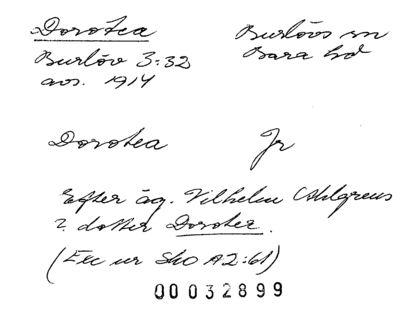 Dorotea
Burlövs sn
Burlöv 3:32
Bara hd
avs. 1914
Dorotea Jr
Efter äg. Vilhelm Ahlgrens
2. dotter Dorotea.
(Exc ur Sko A2:61)
00032899